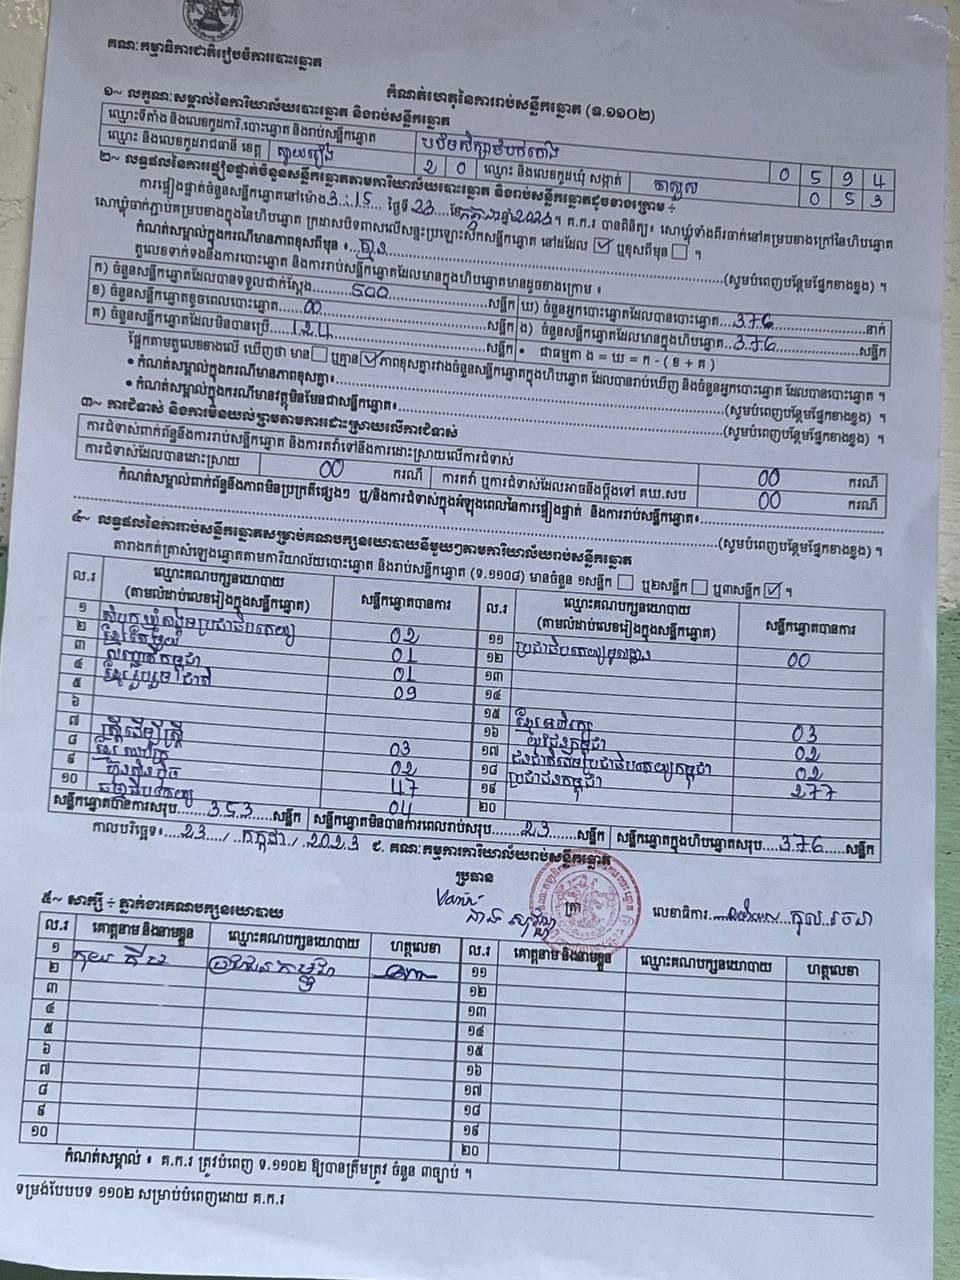 គណៈកម្មាធិការជាតិរៀបចំការបោះឆ្នោត
កំណត់ហេតុនៃការរាប់សន្លឹកឆ្នោត (ទ.១១០២)
១~ លក្ខណៈសម្គាល់នៃការិយាល័យបោះឆ្នោត និងរាប់សន្លឹកឆ្នោត
ឈ្មោះទីតាំង និងលេខកូដការិ.បោះឆ្នោត និងរាប់សន្លឹកឆ្នោត 0 5 9 4
ឈ្មោះ និងលេខកូដរាជធានី ខេត្ត ស្វាយរៀង 2 0 ឈ្មោះ និងលេខកូដឃុំ សង្កាត់ 0 5 3
២~ លទ្ធផលនៃការផ្ទៀងផ្ទាត់ចំនួនសន្លឹកឆ្នោតតាមការិយាល័យបោះឆ្នោត និងរាប់សន្លឹកឆ្នោតដូចខាងក្រោម ÷
ការផ្ទៀងផ្ទាត់ចំនួនសន្លឹកឆ្នោតនៅម៉ោង 3:15 ថ្ងៃទី 23 ខែ កក្កដា ឆ្នាំ 2023 ។ គ.ក.រ បានពិនិត្យ៖ សោឃ្មុំទាំងពីរចាក់នៅគម្របខាងក្រៅនៃហិបឆ្នោត
សោឃ្មុំចាក់ភ្ជាប់គម្របខាងក្នុងនៃហិបឆ្នោត ក្រដាសបិទពាសលើសន្ទះប្រឡោះស៊កសន្លឹកឆ្នោត នៅដដែល ☑ ឬខុសពីមុន ☐ ។
កំណត់សម្គាល់ក្នុងករណីមានភាពខុសពីមុន ៖ គ្មាន (សូមបំពេញបន្ថែមផ្នែកខាងខ្នង) ។
តួលេខទាក់ទងនឹងការបោះឆ្នោត និងការរាប់សន្លឹកឆ្នោតដែលមានក្នុងហិបឆ្នោតមានដូចខាងក្រោម ៖
ក) ចំនួនសន្លឹកឆ្នោតដែលបានទទួលជាក់ស្តែង 500 សន្លឹក ឃ) ចំនួនអ្នកបោះឆ្នោតដែលបានបោះឆ្នោត 376 នាក់
ខ) ចំនួនសន្លឹកឆ្នោតខូចពេលបោះឆ្នោត 00 សន្លឹក ង) ចំនួនសន្លឹកឆ្នោតដែលមានក្នុងហិបឆ្នោត 376 សន្លឹក
គ) ចំនួនសន្លឹកឆ្នោតដែលមិនបានប្រើ 124 សន្លឹក • ជាធម្មតា ង = ឃ = ក - ( ខ + គ )
ផ្អែកតាមតួលេខខាងលើ ឃើញថា មាន ☐ ឬគ្មាន ☑ ភាពខុសគ្នារវាងចំនួនសន្លឹកឆ្នោតក្នុងហិបឆ្នោត ដែលបានរាប់ឃើញ និងចំនួនអ្នកបោះឆ្នោត ដែលបានបោះឆ្នោត ។
• កំណត់សម្គាល់ក្នុងករណីមានភាពខុសគ្នា៖ (សូមបំពេញបន្ថែមផ្នែកខាងខ្នង) ។
• កំណត់សម្គាល់ក្នុងករណីមានវត្ថុមិនមែនជាសន្លឹកឆ្នោត៖ (សូមបំពេញបន្ថែមផ្នែកខាងខ្នង) ។
៣~ ការជំទាស់ និងការមិនយល់ព្រមតាមការដោះស្រាយលើការជំទាស់
ការជំទាស់ពាក់ព័ន្ធនឹងការរាប់សន្លឹកឆ្នោត និងការតវ៉ាទៅនឹងការដោះស្រាយលើការជំទាស់ 00 ករណី
ការជំទាស់ដែលបានដោះស្រាយ 00 ករណី ការតវ៉ា ឬការជំទាស់ដែលអាចនឹងប្តឹងទៅ គឃ.សប 00 ករណី
កំណត់សម្គាល់ពាក់ព័ន្ធនឹងភាពមិនប្រក្រតីផ្សេងៗ ឬ/និងការជំទាស់ក្នុងអំឡុងពេលនៃការផ្ទៀងផ្ទាត់ និងការរាប់សន្លឹកឆ្នោត៖
(សូមបំពេញបន្ថែមផ្នែកខាងខ្នង) ។
៤~ លទ្ធផលនៃការរាប់សន្លឹកឆ្នោតសម្រាប់គណបក្សនយោបាយនីមួយៗតាមការិយាល័យរាប់សន្លឹកឆ្នោត
តារាងកត់ត្រាសំឡេងឆ្នោតតាមការិយាល័យបោះឆ្នោត និងរាប់សន្លឹកឆ្នោត (ទ.១១០៨) មានចំនួន ១សន្លឹក ☐ ឬ២សន្លឹក ☐ ឬ៣សន្លឹក ☑ ។
ល.រ ឈ្មោះគណបក្សនយោបាយ (តាមលំដាប់លេខរៀងក្នុងសន្លឹកឆ្នោត) សន្លឹកឆ្នោតបានការ ល.រ ឈ្មោះគណបក្សនយោបាយ (តាមលំដាប់លេខរៀងក្នុងសន្លឹកឆ្នោត) សន្លឹកឆ្នោតបានការ
១ សំបុកឃ្មុំសង្គមប្រជាធិបតេយ្យ 02 ១១ ប្រជាធិបតេយ្យមូលដ្ឋាន 00
២ ខ្មែរតែមួយ 01 ១២
៣ សញ្ជាតិកម្ពុជា 01 ១៣
៤ ខ្មែររួបរួមជាតិ 09 ១៤
៥ ១៥ ខ្មែរអភិរក្ស 03
៦ ស្ត្រីដើម្បីស្ត្រី 03 ១៦ យុវជនកម្ពុជា 02
៧ ខ្មែរឈប់ក្រ 02 ១៧ ជនជាតិដើមប្រជាធិបតេយ្យកម្ពុជា 02
៨ ហ៊្វុនស៊ិនប៉ិច 47 ១៨ ប្រជាជនកម្ពុជា 277
៩ ធម្មាធិបតេយ្យ 04 ១៩
១០ ២០
សន្លឹកឆ្នោតបានការសរុប 353 សន្លឹក សន្លឹកឆ្នោតមិនបានការពេលរាប់សរុប 23 សន្លឹក សន្លឹកឆ្នោតក្នុងហិបឆ្នោតសរុប 376 សន្លឹក
កាលបរិច្ឆេទ៖ 23 / កក្កដា / 2023 ជ. គណៈកម្មការការិយាល័យរាប់សន្លឹកឆ្នោត
ប្រធាន
ត្រា
លេខាធិការ
៥~ សាក្សី ÷ ភ្នាក់ងារគណបក្សនយោបាយ
ល.រ គោត្តនាម និងនាមខ្លួន ឈ្មោះគណបក្សនយោបាយ ហត្ថលេខា ល.រ គោត្តនាម និងនាមខ្លួន ឈ្មោះគណបក្សនយោបាយ ហត្ថលេខា
១ ប្រជាជនកម្ពុជា ១១
២ ១២
៣ ១៣
៤ ១៤
៥ ១៥
៦ ១៦
៧ ១៧
៨ ១៨
៩ ១៩
១០ ២០
កំណត់សម្គាល់ ៖ គ.ក.រ ត្រូវបំពេញ ទ.១១០២ ឱ្យបានត្រឹមត្រូវ ចំនួន ៣ច្បាប់ ។
ទម្រង់បែបបទ ១១០២ សម្រាប់បំពេញដោយ គ.ក.រ